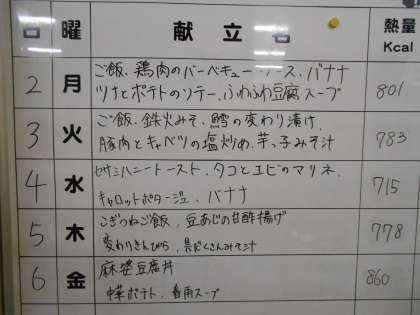 日 曜 献立名 熱量 Kcal
2 月 ご飯、鶏肉のバーベキューソース、バナナ 801
ツナとポテトのソテー、ふわふわ豆腐スープ
3 火 ご飯、鉄火みそ、鱈の変わり漬け、 783
豚肉とキャベツの塩炒め、芋っ子みそ汁
4 水 セサミハニートースト、タコとエビのマリネ、 715
キャロットポタージュ、バナナ
5 木 こぎつねご飯、豆あじの甘酢揚げ 778
変わりきんぴら、具だくさんみそ汁
6 金 麻婆豆腐丼 860
中華ポテト、春雨スープ